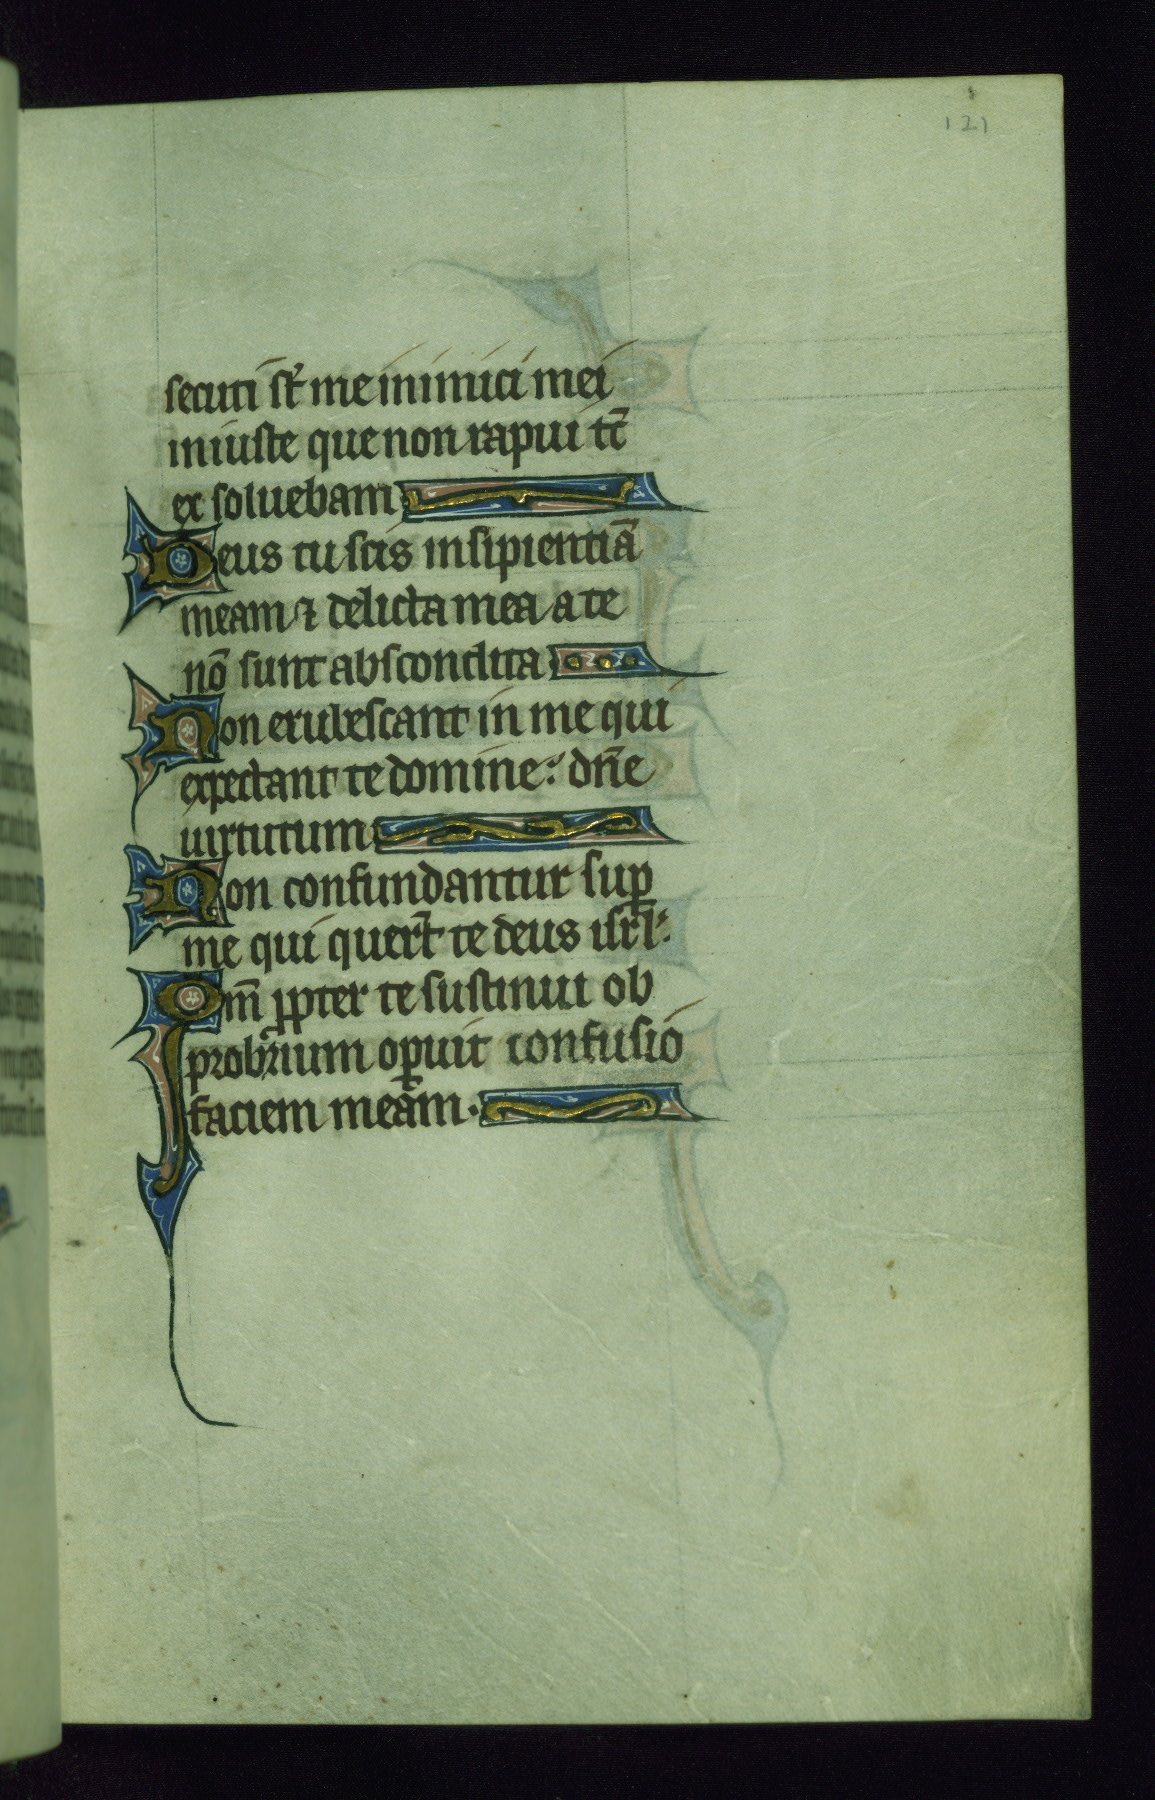 121
secuti st̄ me inimici mei
iniuste que non rapui tc̄
ex soluebam
Deus tu scis insipientiā
meam ⁊ delicta mea a te
nō sunt abscondita
Non erubescant in me qui
expectant te domine: dn̄e
uirtutum
Non confundantur suꝑ
me qui querr̄t te deus isrl̄:
Qm̄ ꝓpter te sustinui ob
probrium oꝑuit confusio
faciem meam.